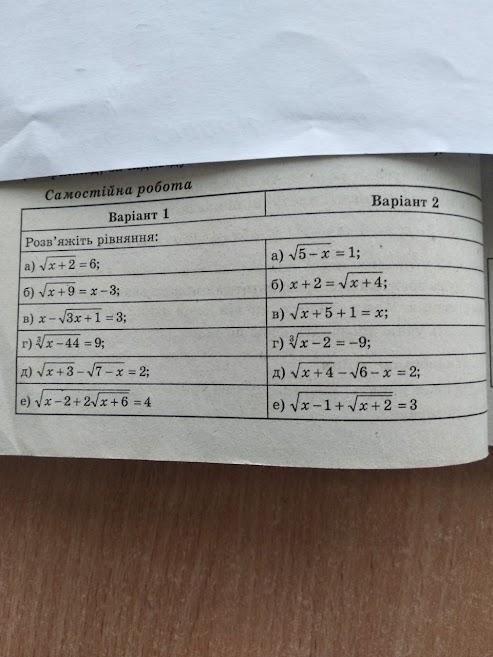 Самостійна робота
Варіант 1 Варіант 2
Розв'яжіть рівняння:
а) √(x+2) = 6; а) √(5−x) = 1;
б) √(x+9) = x−3; б) x+2 = √(x+4);
в) x−√(3x+1) = 3; в) √(x+5)+1 = x;
г) ∛(x−44) = 9; г) ∛(x−2) = −9;
д) √(x+3)−√(7−x) = 2; д) √(x+4)−√(6−x) = 2;
е) √(x−2+2√(x+6)) = 4 е) √(x−1+√(x+2)) = 3